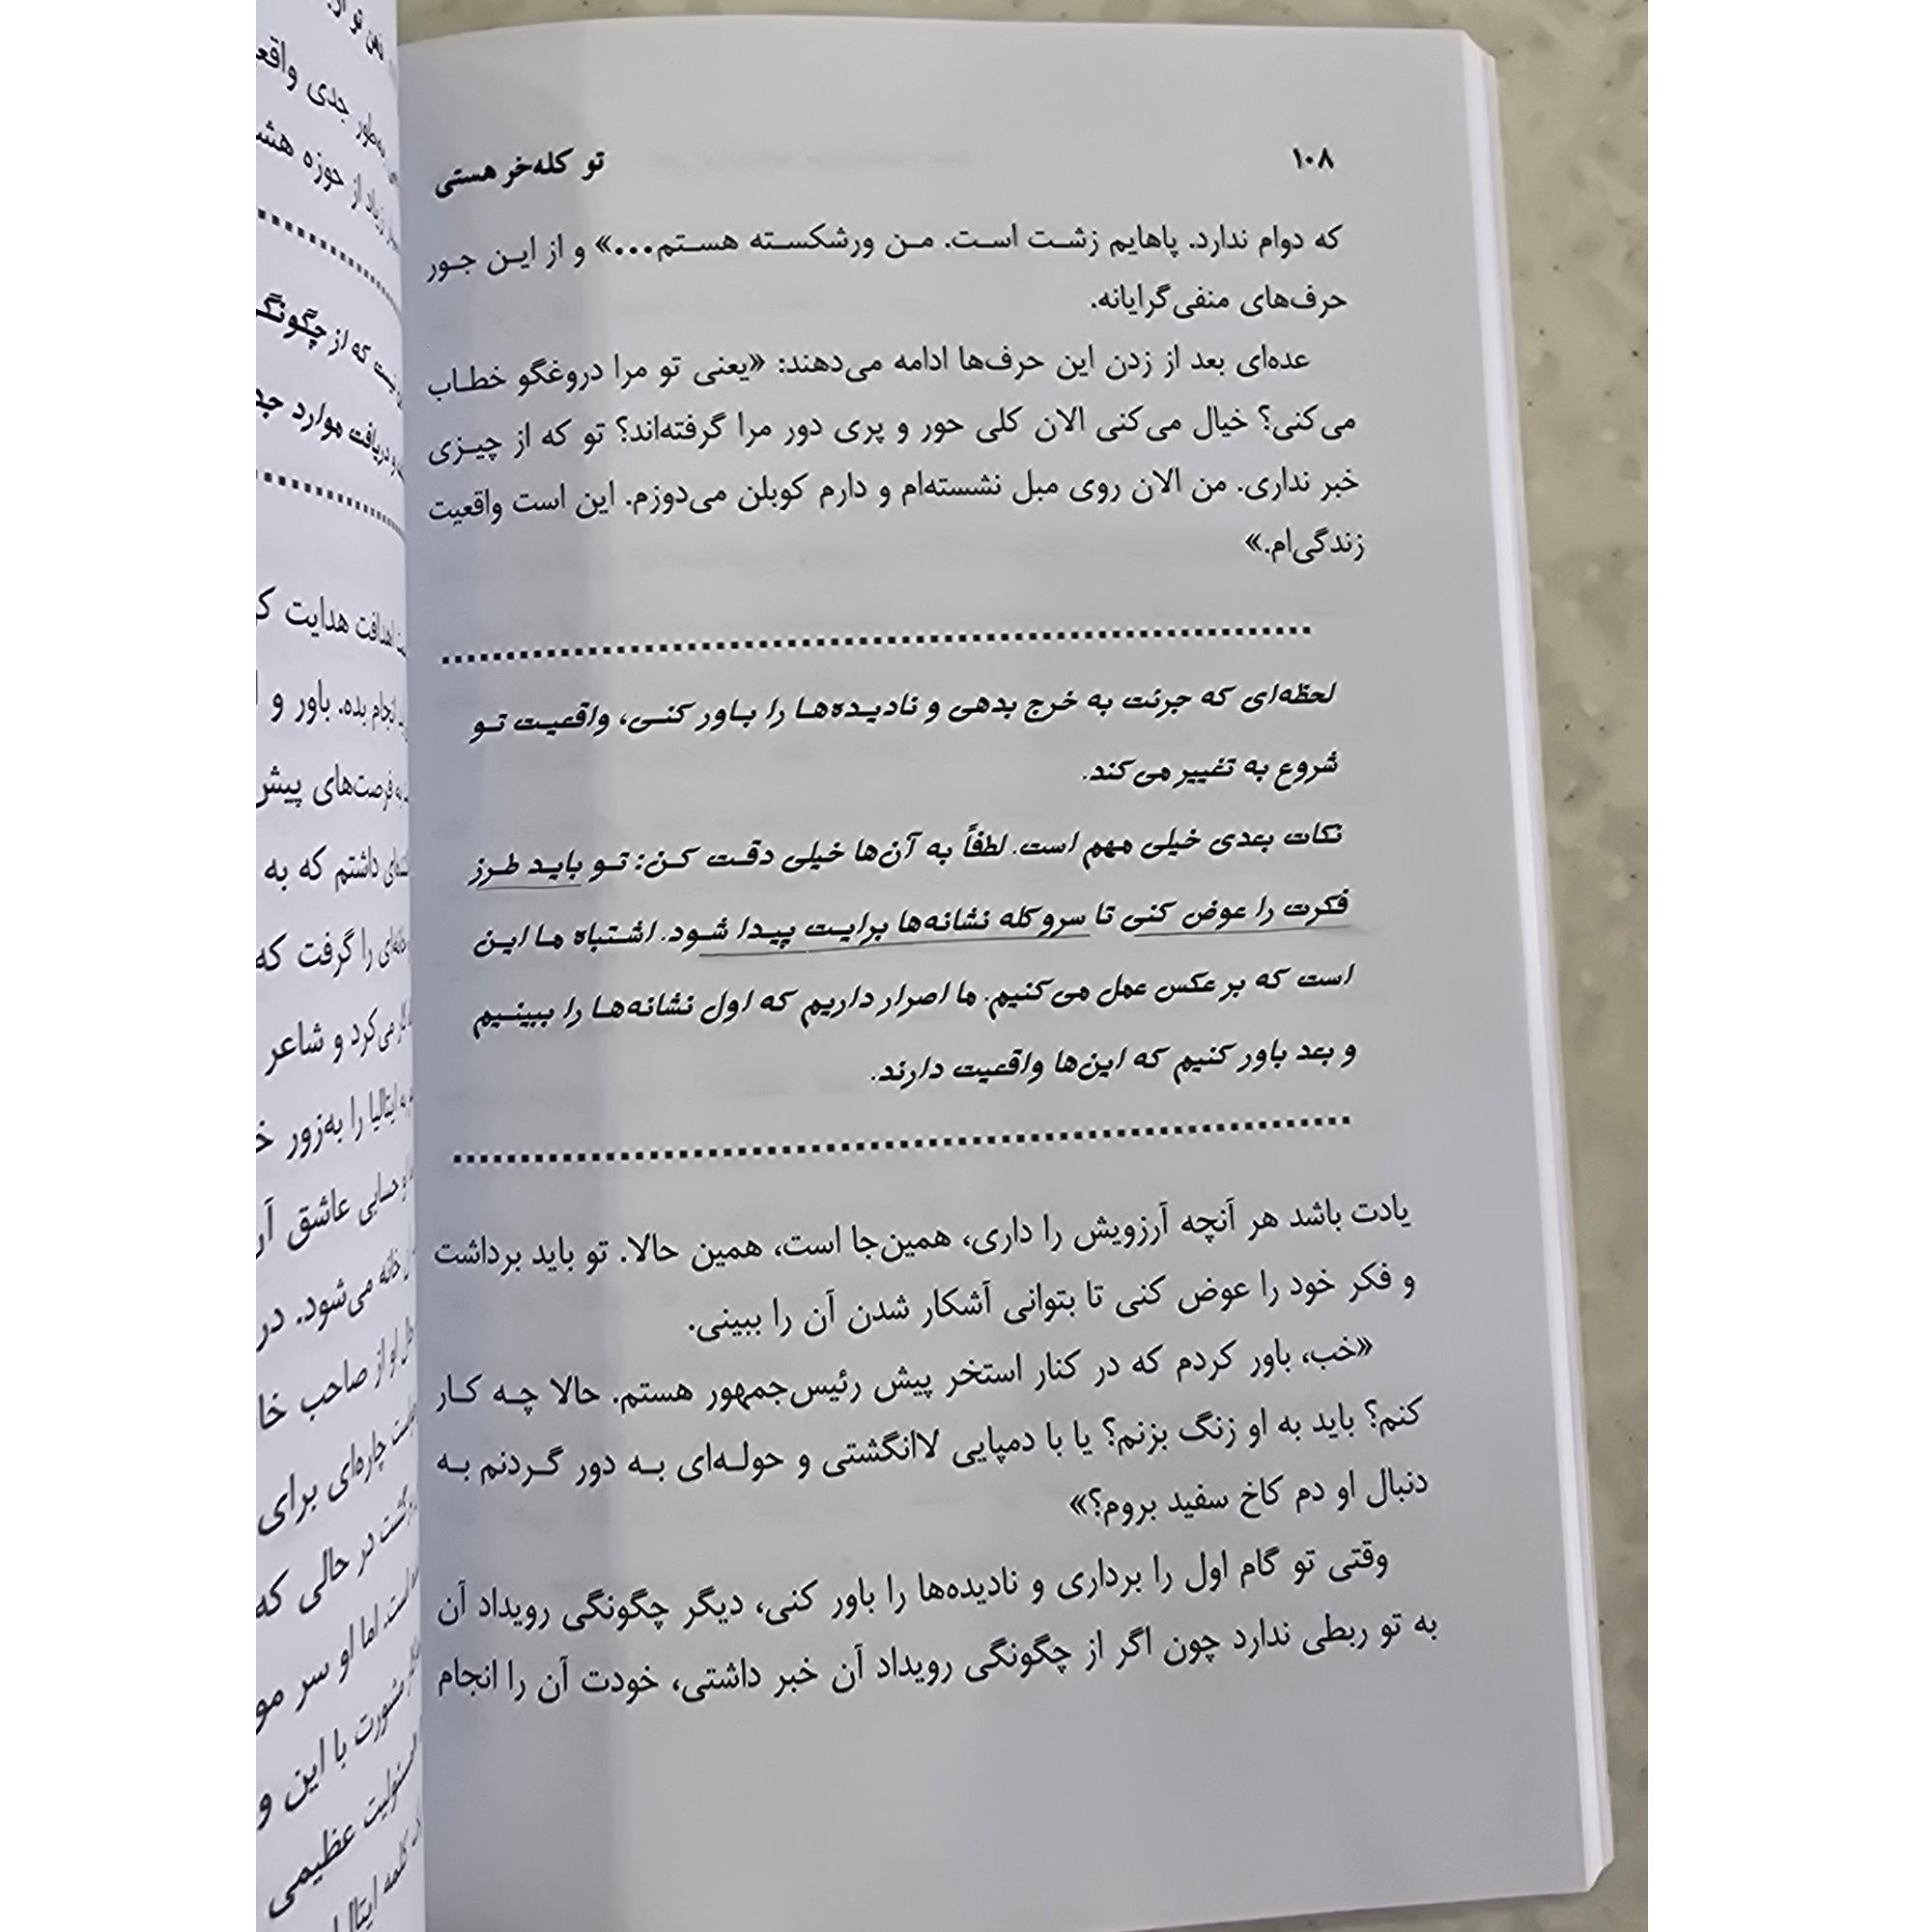 ۱۰۸
تو کله‌خر هستی
که دوام ندارد. پاهایم زشت است. من ورشکسته هستم...» و از این جور
حرف‌های منفی‌گرایانه.
عده‌ای بعد از زدن این حرف‌ها ادامه می‌دهند: «یعنی تو مرا دروغگو خطاب
می‌کنی؟ خیال می‌کنی الان کلی حور و پری دور مرا گرفته‌اند؟ تو که از چیزی
خبر نداری. من الان روی مبل نشسته‌ام و دارم کوبلن می‌دوزم. این است واقعیت
زندگی‌ام.»
لحظه‌ای که جرئت به خرج بدهی و نادیده‌ها را باور کنی، واقعیت تو
شروع به تغییر می‌کند.
نکات بعدی خیلی مهم است. لطفاً به آن‌ها خیلی دقت کن: تو باید طرز
فکرت را عوض کنی تا سروکله نشانه‌ها برایت پیدا شود. اشتباه ما این
است که برعکس عمل می‌کنیم. ما اصرار داریم که اول نشانه‌ها را ببینیم
و بعد باور کنیم که این‌ها واقعیت دارند.
یادت باشد هر آنچه آرزویش را داری، همین‌جا است، همین حالا. تو باید برداشت
و فکر خود را عوض کنی تا بتوانی آشکار شدن آن را ببینی.
«خب، باور کردم که در کنار استخر پیش رئیس‌جمهور هستم. حالا چه کار
کنم؟ باید به او زنگ بزنم؟ یا با دمپایی لاانگشتی و حوله‌ای به دور گردنم به
دنبال او دم کاخ سفید بروم؟»
وقتی تو گام اول را برداری و نادیده‌ها را باور کنی، دیگر چگونگی رویداد آن
به تو ربطی ندارد چون اگر از چگونگی رویداد آن خبر داشتی، خودت آن را انجام
جدی
از حوزه
که از چگونگ
دریافت موارد
اهدافت هدایت
انجام بده. باور و
فرصت‌های پیش
داشتم که به
را گرفت که
می‌کرد و شاعر
ایتالیا را به‌زور
حسابی عاشق
خانه می‌شود. در
او از صاحب
چاره‌ای برای
در حالی که
است. اما او سر
مشورت با این و
مسئولیت عظیمی
کلمه